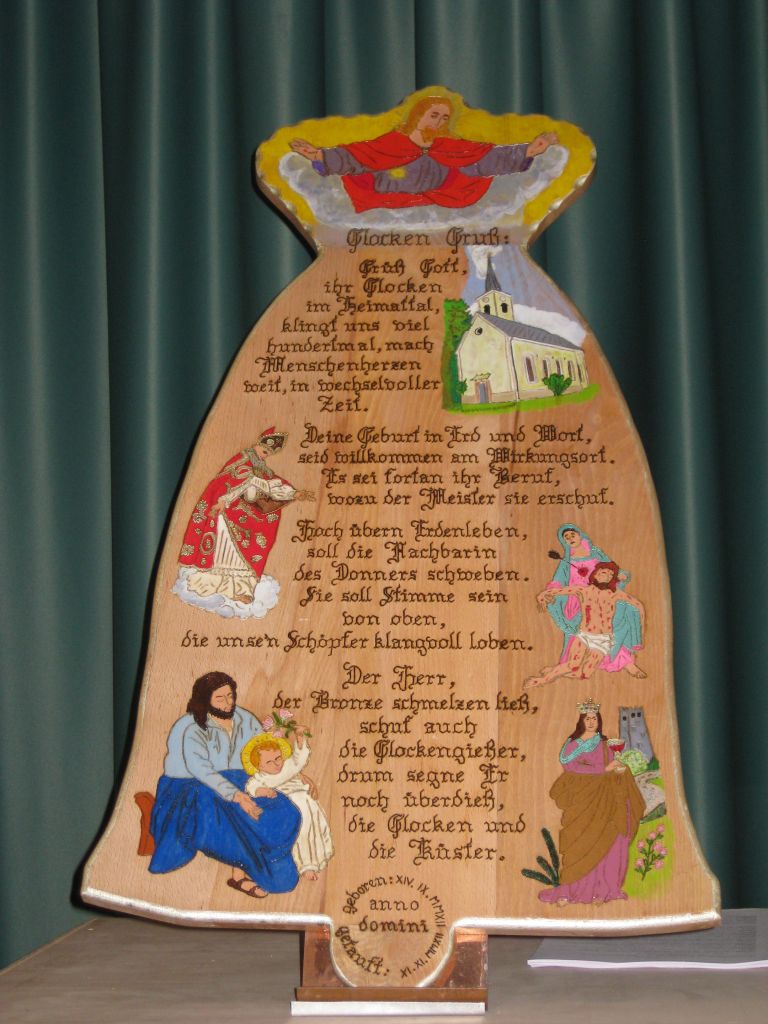 Glocken Gruß:
Grüß Gott,
ihr Glocken
im Heimattal,
klingt uns viel
hundertmal, mach
Menschenherzen
weit, in wechselvoller
Zeit.
Deine Geburt in Erd und Wort,
seid willkommen am Wirkungsort.
Es sei fortan ihr Beruf,
wozu der Meister sie erschuf.
Hoch übern Erdenleben,
soll die Nachbarin
des Donners schweben.
Sie soll Stimme sein
von oben,
die unse'n Schöpfer klangvoll loben.
Der Herr,
der Bronze schmelzen ließ,
schuf auch
die Glockengießer,
drum segne Er
noch überdieß,
die Glocken und
die Küster.
geboren: XIV. IX. MMXII
anno
domini
getauft: XI. XI. MMXII